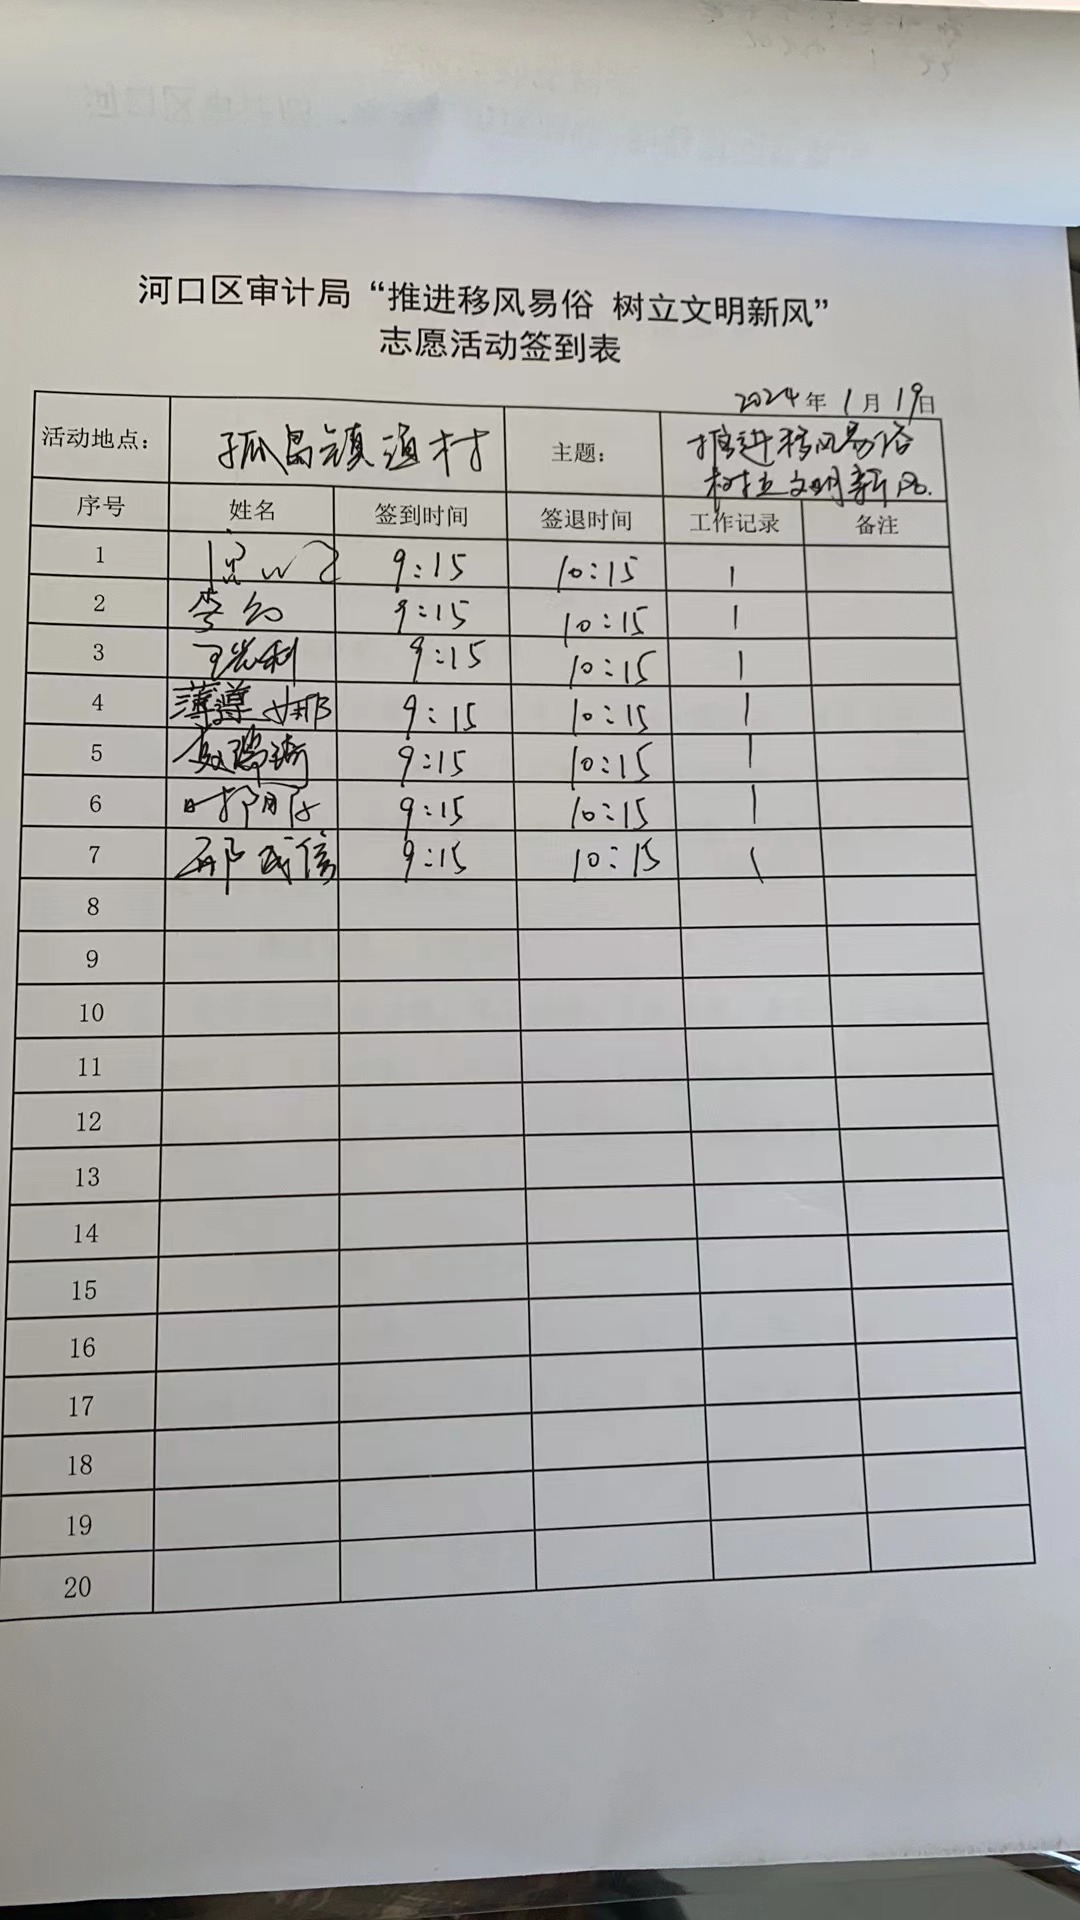 河口区审计局“推进移风易俗 树立文明新风”
志愿活动签到表
2024年1月19日
活动地点： 孤岛镇 村 主题： 推进移风易俗
树立文明新风.
序号 姓名 签到时间 签退时间 工作记录 备注
1 9:15 10:15 1
2 李 9:15 10:15 1
3 9:15 10:15 1
4 薄 娜 9:15 10:15 1
5 9:15 10:15 1
6 9:15 10:15 1
7 邢成信 9:15 10:15 1
8
9
10
11
12
13
14
15
16
17
18
19
20